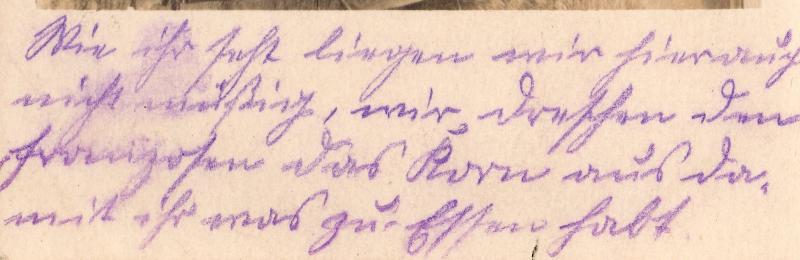 Wie ihr seht liegen wir hier auch
nicht müßig, wir dreschen den
Franzosen das Korn aus da-
mit ihr was zu Essen habt